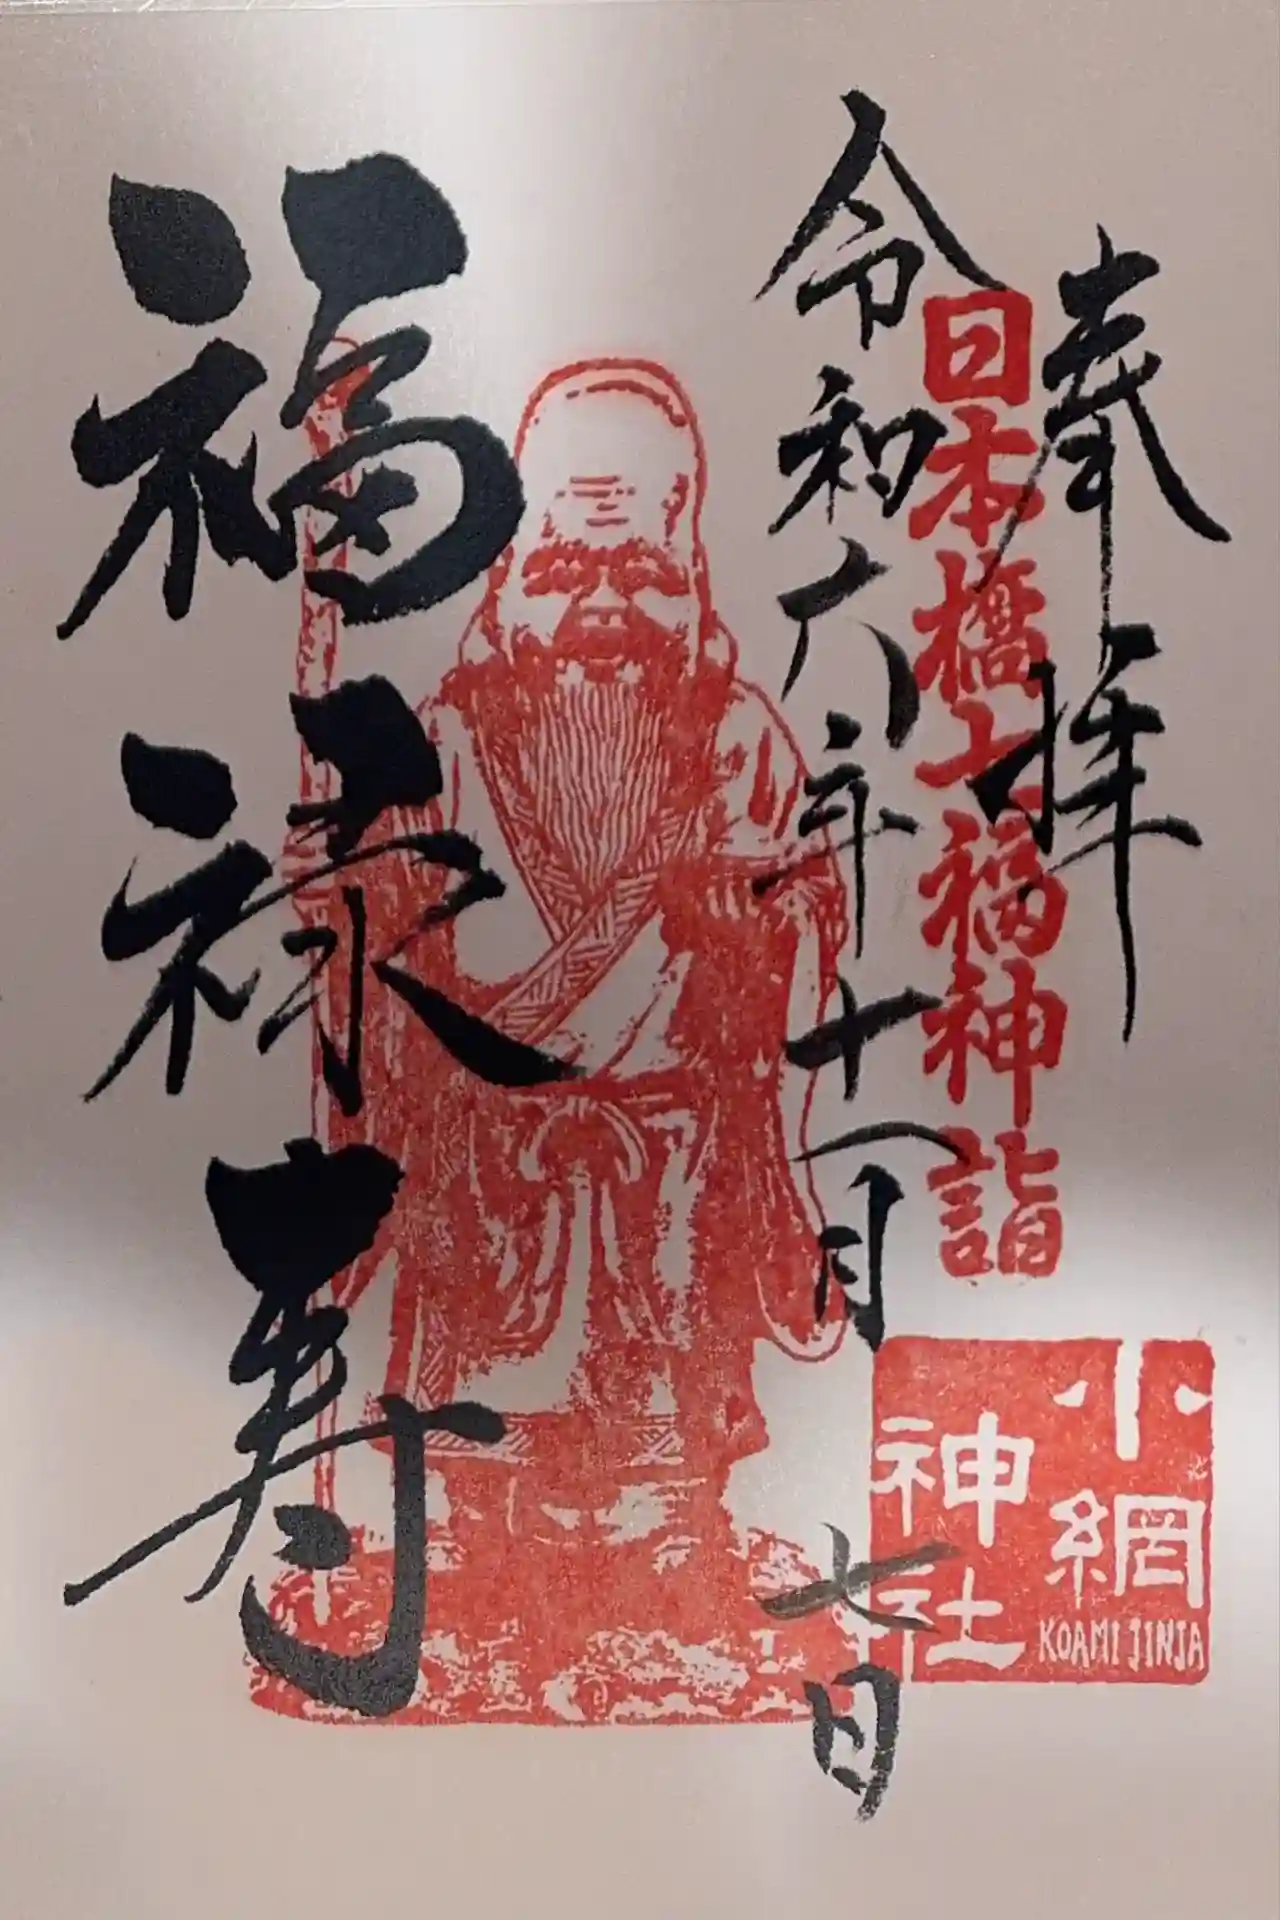 奉拝
日本橋七福神詣
小網
神社
KOAMI JINJA
令和六年十一月七日
福禄寿